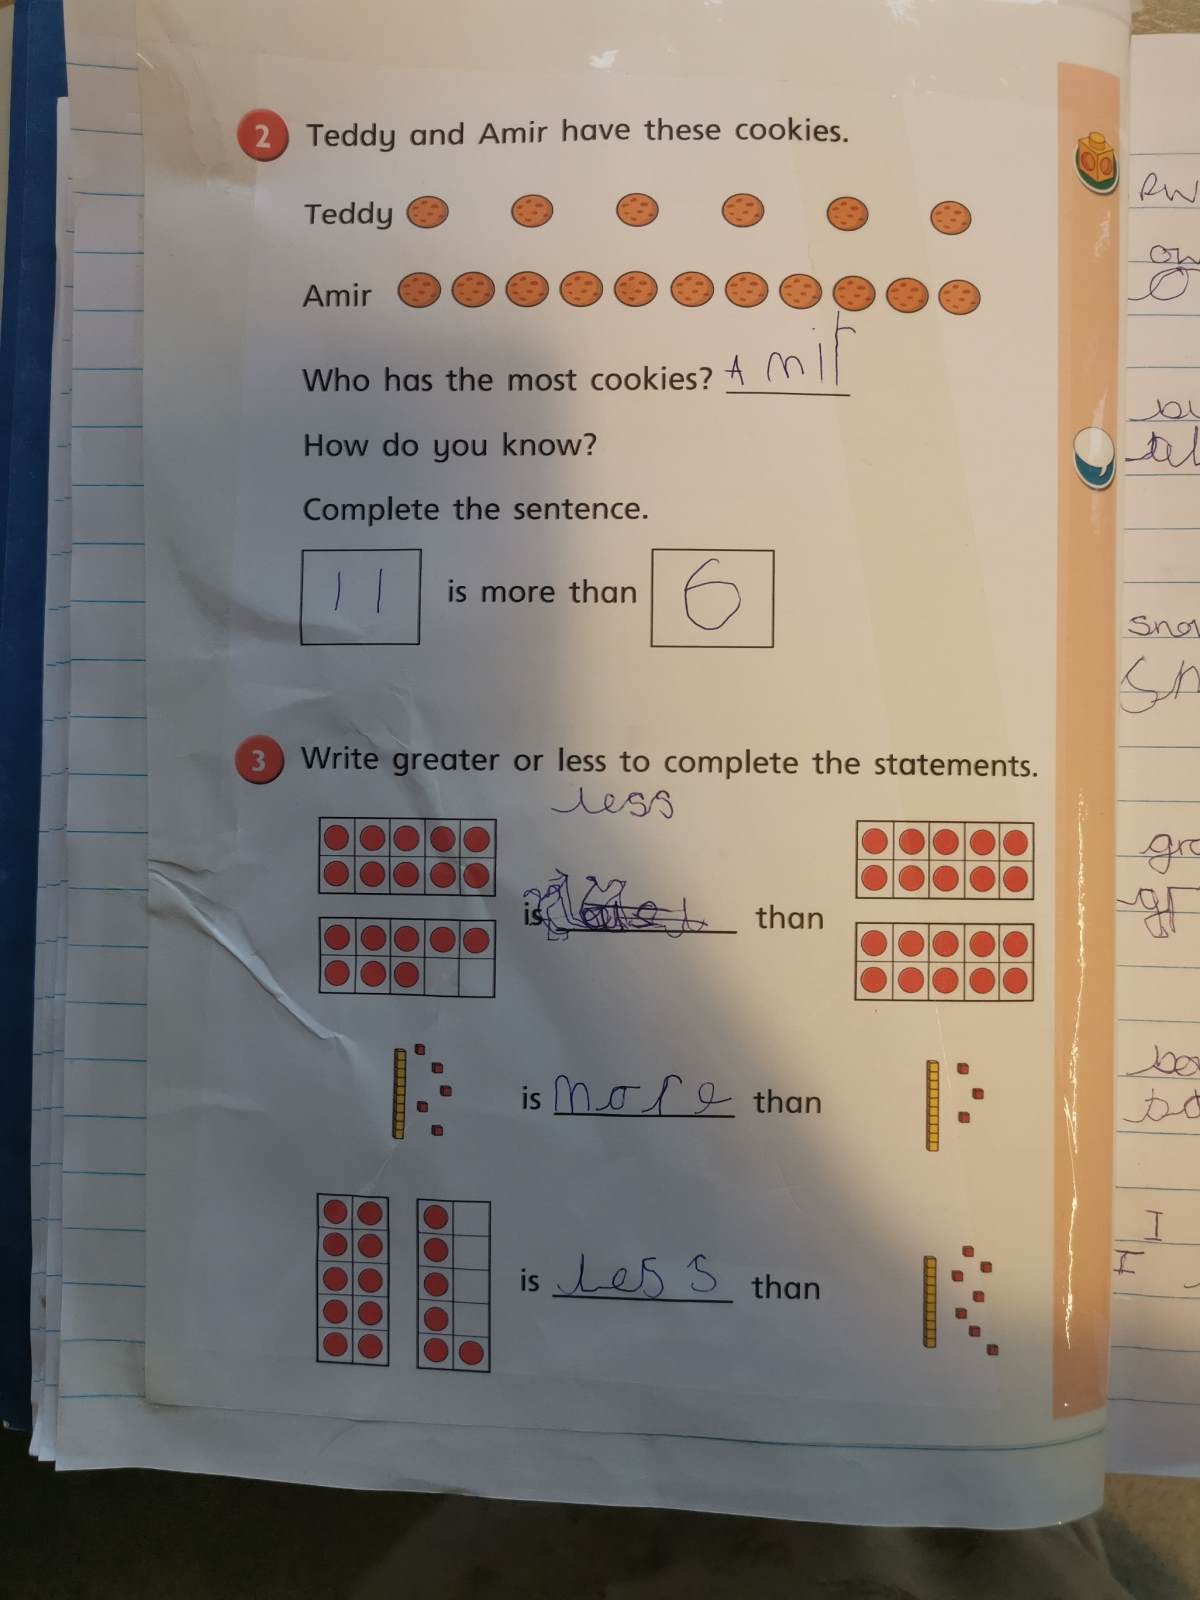 2 Teddy and Amir have these cookies.
Teddy
Amir
Who has the most cookies? Amir
How do you know?
Complete the sentence.
11 is more than 6
3 Write greater or less to complete the statements.
less
is than
is more than
is less than
sno
I
I